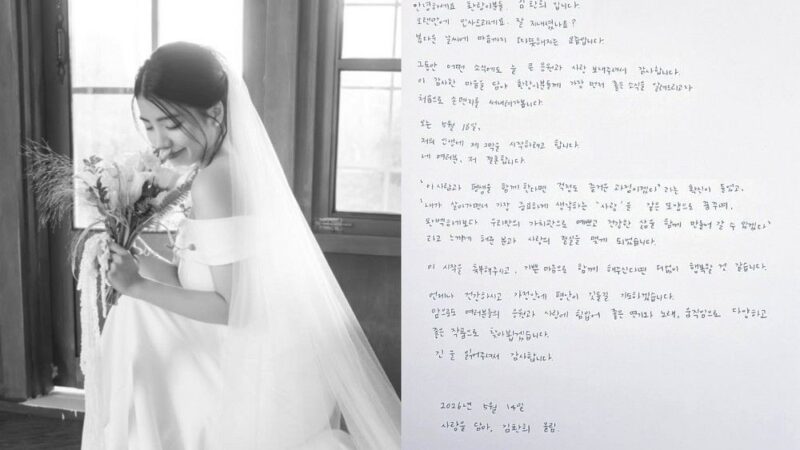 안녕하세요 환랑이분들. 김환희 입니다.
오랜만에 인사드리네요. 잘 지내셨나요?
봄다운 날씨에 마음까지 따뜻해지는 요즘입니다.
그동안 어떤 소식에도 늘 큰 응원과 사랑 보내주셔서 감사합니다.
이 감사한 마음을 담아 환랑이분들께 가장 먼저 좋은 소식을 알려드리고자
처음으로 손편지를 써내려가봅니다.
오는 5월 16일,
저의 인생에 제 2막을 시작하려고 합니다.
네 여러분, 저 결혼합니다.
'이 사람과 평생을 함께 한다면 걱정도 즐거운 과정이겠다' 라는 확신이 들었고,
'내가 살아가면서 가장 중요하게 생각하는 '사랑'을 같은 모양으로 품추며,
완벽하게보다 우리만의 가치관으로 예쁘고 건강한 삶을 함께 만들어 갈 수 있겠다'
라고 느끼게 해준 분과 사랑의 결실을 맺게 되었습니다.
이 시작을 축복해주시고, 기쁜 마음으로 함께 해주신다면 더없이 행복할 것 같습니다.
언제나 건강하시고 가정안에 평안이 깃들길 기도하겠습니다.
앞으로도 여러분들의 응원과 사랑에 힘입어 좋은 연기와 노래, 움직임으로 다양하고
좋은 작품으로 찾아뵙겠습니다.
긴 글 읽어주셔서 감사합니다.
2026년 5월 14일
사랑을 담아, 김환희 올림.